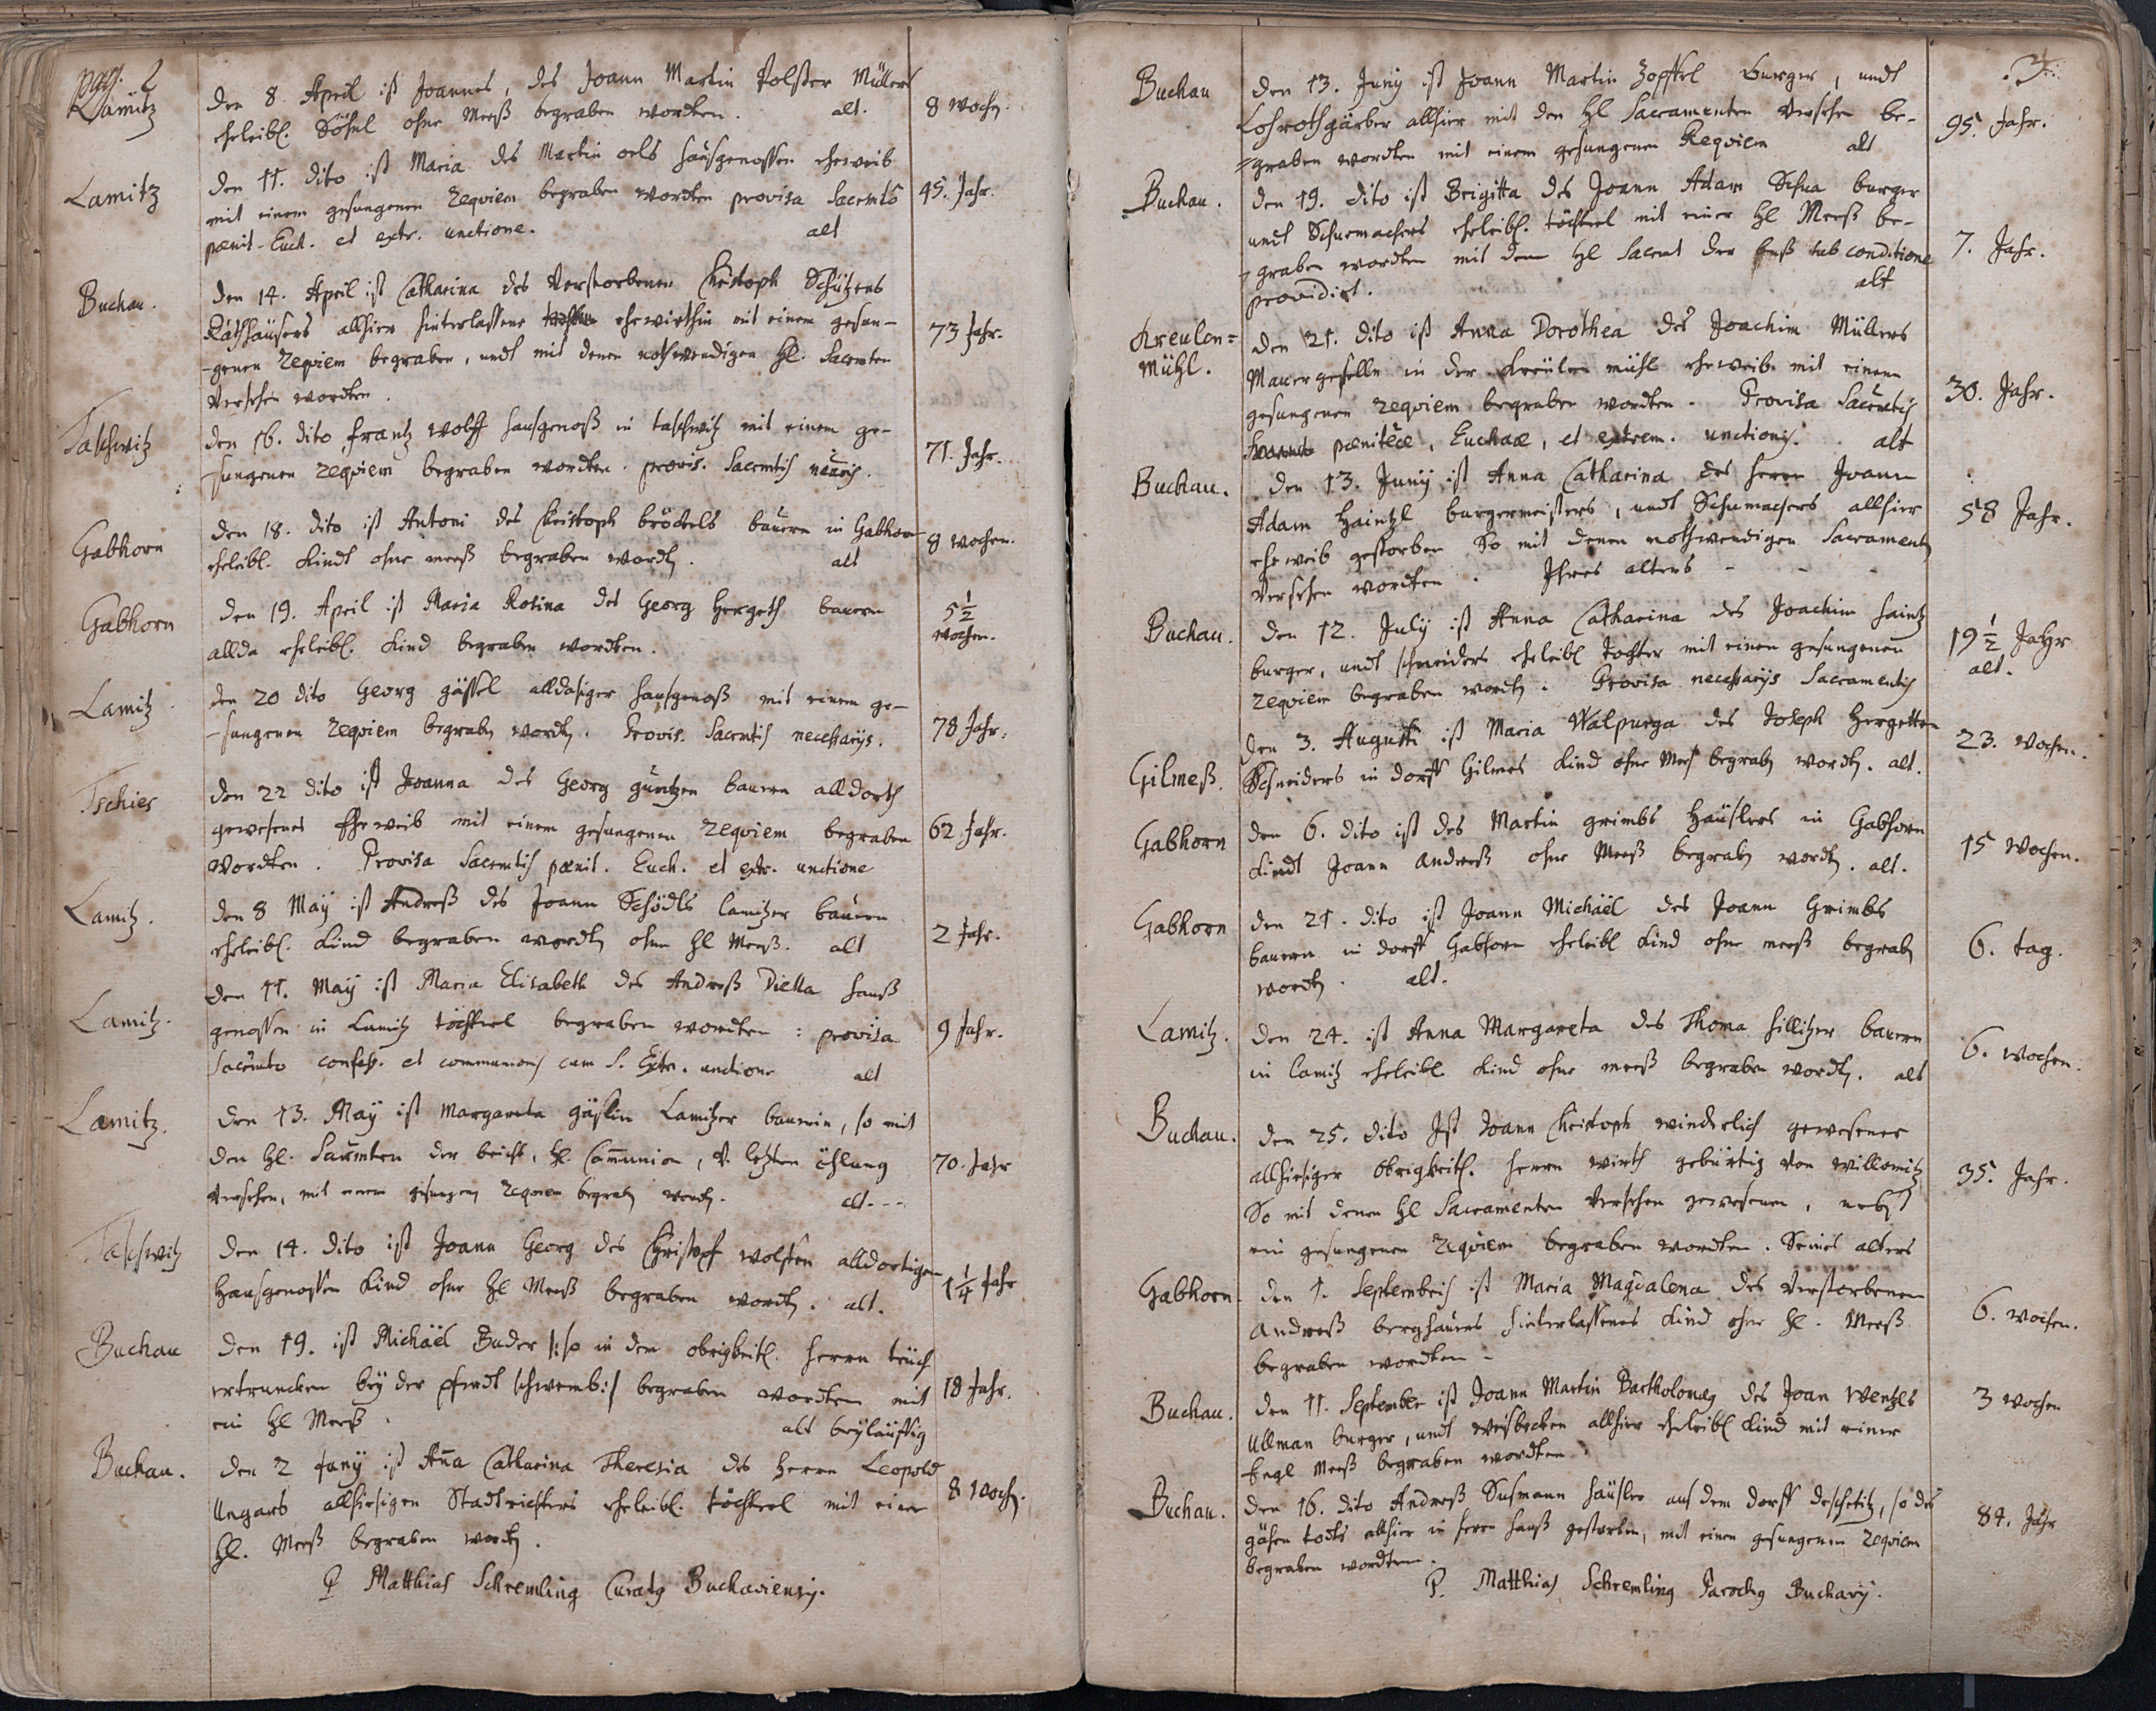 pag. 2
Lamitz
den 8. April ist Joannes, des Joann Martin Polster Müllers
eheleibl. Söhnl ohne Meeß begraben wordten. alt. 8 woch.
Lamitz
den 11. dito ist Maria des Martin oels haußgenossen eheweib
mit einem gesungenen Requiem begraben wordten provisa Sacrmts 45. Jahr.
pænit. Euch. et extr. unctione. alt
Buchau.
den 14. April ist Catharina des Verstorbenen Christoph Schützens
Rathhäusers allhier hinterlassene ehewirthin mit einem gesun-
-genen Requiem begraben, undt mit denen nothwendigen Hl. Sacrmten 73 Jahr.
Versehen wordten.
Taschwitz
den 16. dito frantz wolff haußgenoß in taschwitz mit einem ge-
-sungenen Requiem begraben wordten. provis. Sacrmtis necariis. 71. Jahr.
Gabhorn
den 18. dito ist Antoni des Christoph bröckels bauern in Gabhorn
eheleibl. Kindt ohne meeß begraben wordt. alt 8 wochen.
Gabhorn
den 19. April ist Maria Rosina des Georg Hergeth bauern 5 1/2
allda eheleibl. Kind begraben wordten. wochen.
Lamitz
den 20 dito Georg gässel alldasiger haußgenoß mit einem ge-
-sungenen Requiem begraben wordt. Provis. Sacrmtis necessarijs. 78 Jahr.
Tschies
den 22 dito ist Joanna des Georg güntzen bauern alldorth
gewesenes Eheweib mit einem gesungenen Requiem begraben 62 Jahr.
wordten. Provisa Sacrmtis pænit. Euch. et extr. unctione
Lamitz.
den 8 Maÿ ist Andreß des Joann Schödls lamitzer bauern
eheleibl. Kind begraben wordt ohne Hl Meeß. alt 2 Jahr.
Lamitz.
den 11. Maÿ ist Maria Elisabeth des Andreß Diella hauß
genossen in Lamitz töchterl begraben wordten: provisa 9 Jahr.
Sacrmto confess. et communionis cum S. Extr. unctione alt
Lamitz.
den 13. Maÿ ist Margareta gässlin Lamitzer bauerin, so mit
den Hl. Sacrmten der beicht, Hl. Communion, v. letzten öhlung 70. Jahr
Versehen, mit einem gesungen Requiem begrab wordt. alt - - -
Taschwitz
den 14. dito ist Joann Georg des Christoph wolffen alldortigen
Haußgenossen Kind ohne Hl Meeß begraben wordt. alt. 1 1/4 Jahr
Buchau
den 19. ist Michäel Buder /: so in dem obrigkeitl. herrn teüch
ertruncken beÿ der pferdt schwemb :/ begraben wordten mit 18 Jahr.
ein Hl Meeß. alt beÿläuffig
Buchau.
den 2 Junÿ ist Aña Catharina Theresia des Herrn Leopold
Ungars allhiesigen Stadtrichters eheleibl. töchterl mit einer 8 Woch.
Hl. Meeß begraben wordt.
P Matthias Schremling Curatg Buchaviensis.
3.
Buchau
den 13. Junÿ ist Joann Martin Zopffel burger, undt
Lohrothgärber allhier mit den Hl Sacramenten Versehen be- 95. Jahr.
=graben wordten mit einem gesungenen Requiem alt
Buchau.
den 19. dito ist Brigitta des Joann Adam Schua burger
undt Schuemachers eheleibl. töchterl mit einer Hl Meeß be-
-graben wordten mit dem Hl Sacrmt der buß sub conditione 7. Jahr.
providirt. alt
Kreulen=
Mühl.
den 21. dito ist Anna Dorothea des Joachim Müllers
Mauergeselln in der Kreülen mühl eheweib mit einem
gesungenen Requiem begraben wordten. Provisa Sacrmtis 30. Jahr.
pæniteæ, Euchaæ, et extrem. unctionis. alt
Buchau.
den 13. Junÿ ist Anna Catharina des herrn Joann
Adam Haintzl burgermeisters, undt Schumachers allhier 58 Jahr.
eheweib gestorben So mit denen nothwendigen Sacrament
Versehen wordten. Ihres alters - - -
Buchau.
den 12. Julÿ ist Anna Catharina des Joachim haintz 19 1/2 Jahr
burger, undt schneiders eheleibl tochter mit einen gesungenen alt.
Requiem begraben wordt. Provisa necessarijs Sacramentis
Gilmeß.
den 3. Augusti ist Maria Walpurga des Joseph Hergetten 23. wochen.
Schneiders in dorff Gilmes Kind ohne Mess begrab wordt. alt.
Gabhorn
den 6. dito ist des Martin grimbs Häuslers in Gabhorn
Kindt Joann Andreß ohne Meeß begrab wordt. alt. 15 Wochen.
Gabhorn
den 21. dito ist Joann Michäel des Joann Grimbs
bauern in dorff Gabhorn eheleibl Kind ohne meeß begrab 6. tag.
wordt. alt.
Lamitz.
den 24. ist Anna Margareta des Thoma hillitzer bauern
in lamitz eheleibl Kind ohne meeß begraben wordt. alt 6. wochen.
Buchau.
den 25. dito Ist Joann Christoph winderlich gewesener
allhiesiger Obrigkeitl. herrn wirth gebürtig von Willomitz
So mit denen Hl Sacramenten Versehen gewesenen, nebst 35. Jahr.
ein gesungenen Requiem begraben wordten. Seines alters
Gabhorn.
den 1. Septembris ist Maria Magdalena des Verstorbenen
Andreß berghauers hinterlassenes Kind ohne Hl. Meeß 6. wochen.
begraben wordten -
Buchau.
den 11. September ist Joann Martin Bartholomæg des Joan Wentzls 3 wochen
Ullman burger, undt weisbecken allhier eheleibl Kind mit einer
Engl Meeß begraben wordten.
Buchau.
den 16. dito Andreß Susmann häusler aus dem dorff deschetitz, so des
gähen todts allhier in herrn hauß gestorben, mit einen gesungenen Requiem 84. Jahr
begraben wordten.
P. Matthias Schremling Parochg Buchavij.